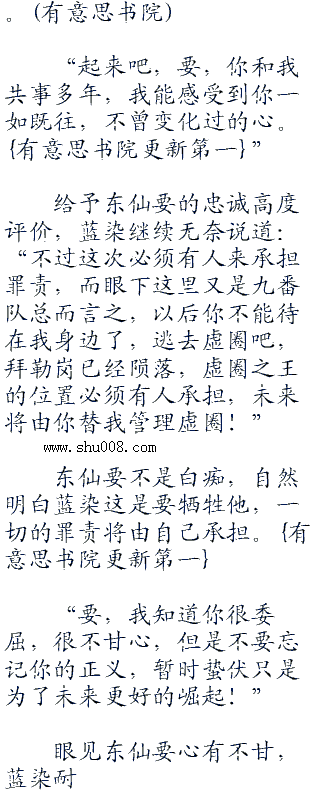 。(有意思书院)
“起来吧，要，你和我
共事多年，我能感受到你一
如既往，不曾变化过的心。
{有意思书院更新第一}”
给予东仙要的忠诚高度
评价，蓝染继续无奈说道：
“不过这次必须有人来承担
罪责，而眼下这里又是九番
队总而言之，以后你不能待
在我身边了，逃去虚圈吧，
拜勒岗已经陨落，虚圈之王
的位置必须有人承担，未来
将由你替我管理虚圈！”
www.shu008.com
东仙要不是白痴，自然
明白蓝染这是要牺牲他，一
切的罪责将由自己承担。{有
意思书院更新第一}
“要，我知道你很委
屈，很不甘心，但是不要忘
记你的正义，暂时蛰伏只是
为了未来更好的崛起！”
眼见东仙要心有不甘，
蓝染耐